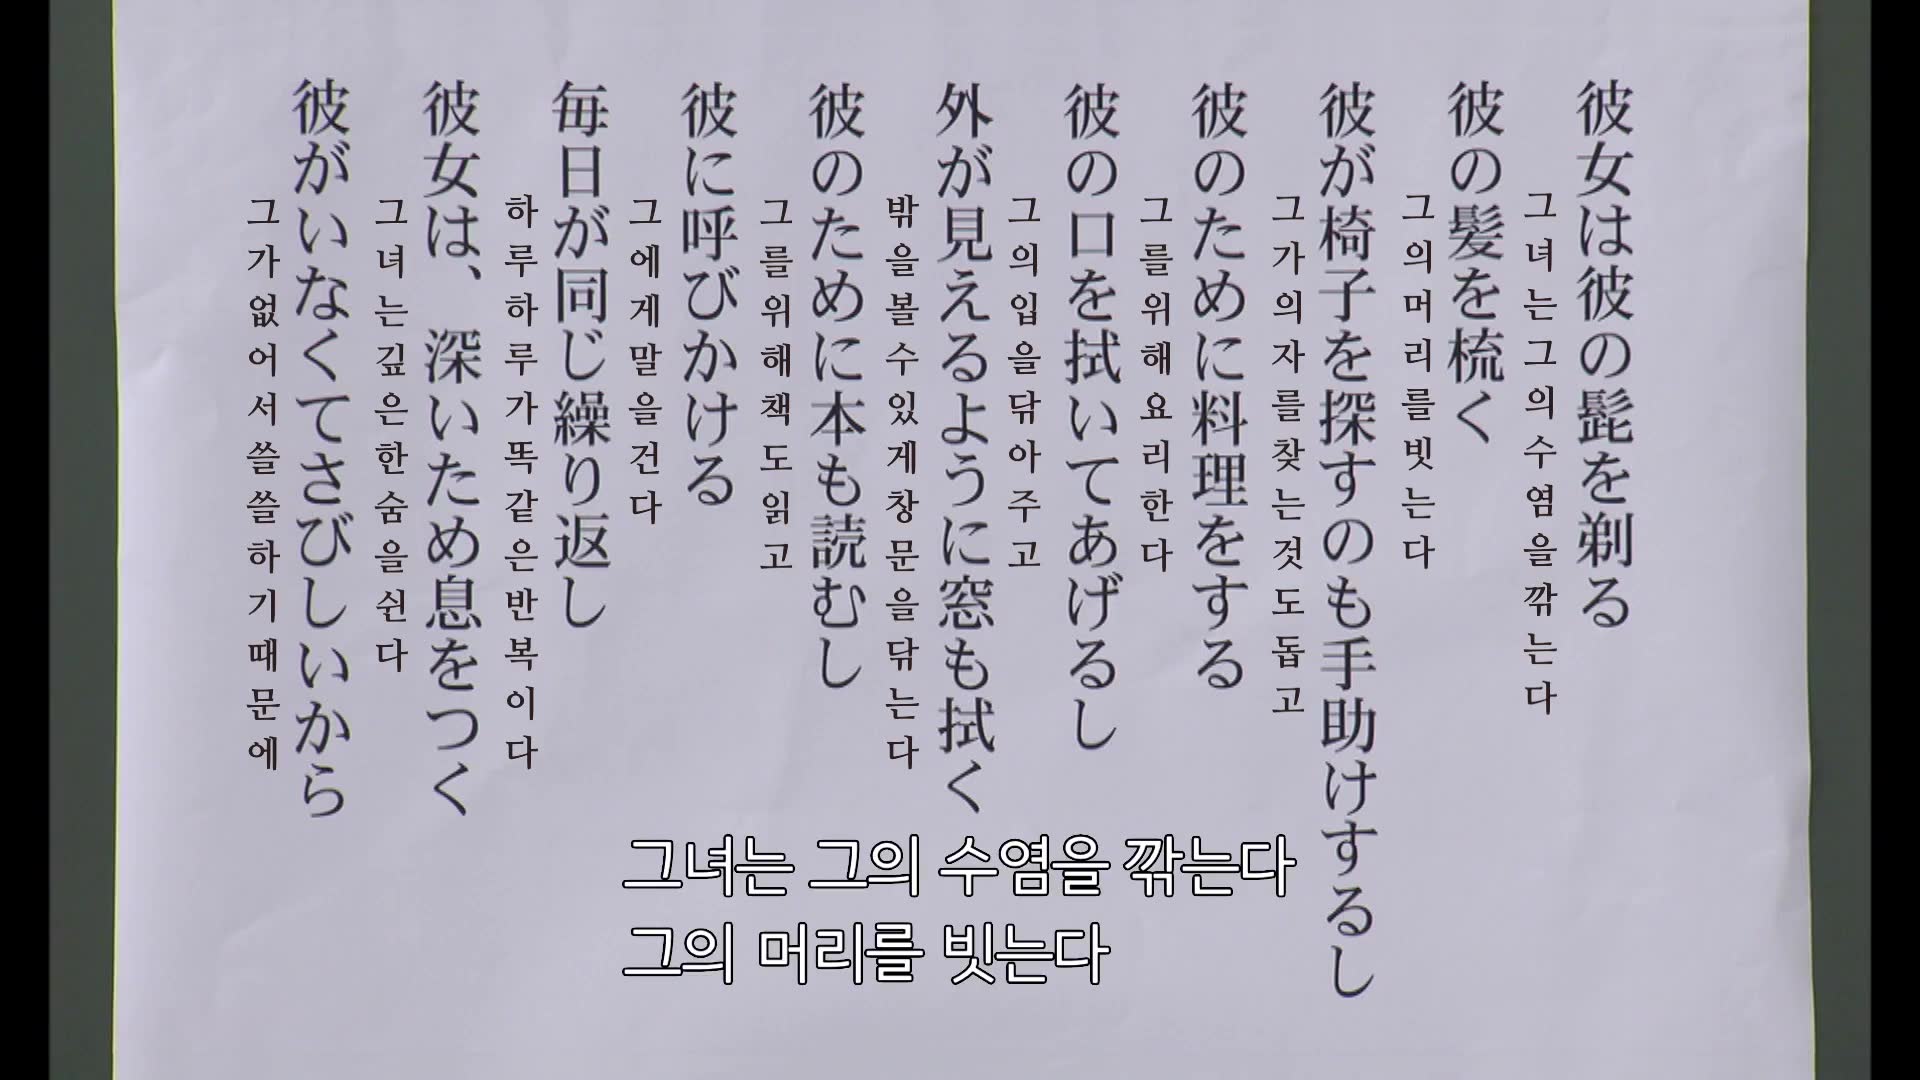 彼女は彼の髭を剃る
그녀는그의수염을깎는다
彼の髪を梳く
그의머리를빗는다
彼が椅子を探すのも手助けするし
그가의자를찾는것도돕고
彼のために料理をする
그를위해요리한다
彼の口を拭いてあげるし
그의입을닦아주고
外が見えるように窓も拭く
밖을볼수있게창문을닦는다
彼のために本も読むし
그를위해책도읽고
彼に呼びかける
그에게말을건다
毎日が同じ繰り返し
하루하루가똑같은반복이다
彼女は、深いため息をつく
그녀는깊은한숨을쉰다
彼がいなくてさびしいから
그가없어서쓸쓸하기때문에
그녀는 그의 수염을 깎는다
그의 머리를 빗는다